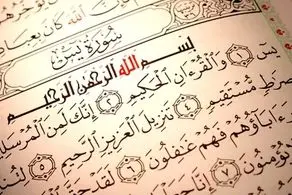 الله كَانَ بِعِبَا
سُورَةُ يس
بِسْمِ اللَّهِ الرَّحْمَٰنِ الرَّحِيمِ
يسٓ ١ وَالْقُرْءَانِ الْحَكِيمِ ٢ إِنَّكَ لَمِنَ الْمُرْسَلِ
صِرَٰطٍ مُّسْتَقِيمٍ ٤ تَنزِيلَ الْعَزِيزِ الرَّحِيمِ ٥ لِتُنذِ
ءَابَآؤُهُمْ فَهُمْ غَٰفِلُونَ ٦ لَقَدْ حَقَّ
يُؤْمِنُونَ ٧ إِنَّا جَعَ